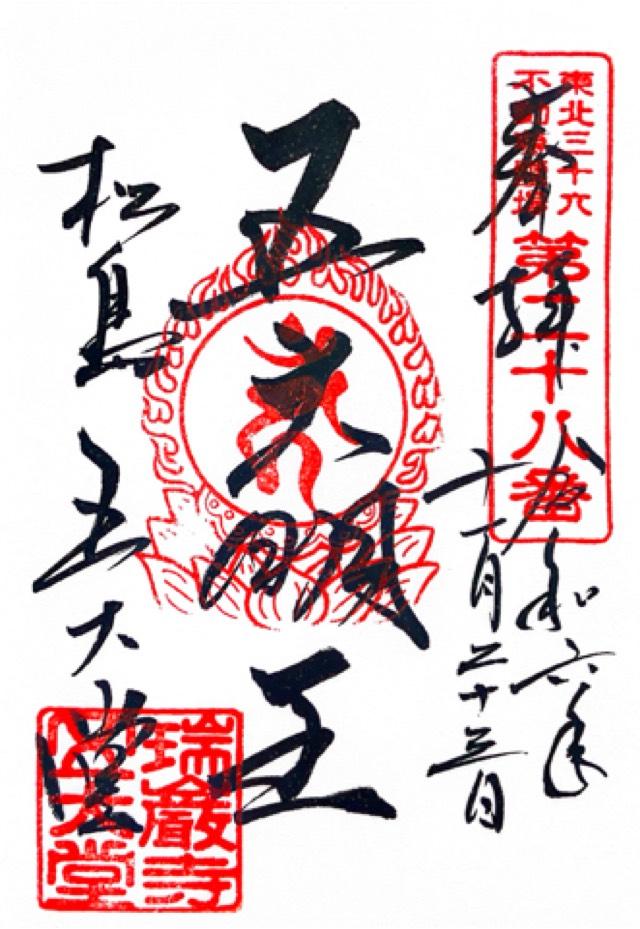 東北三十六
不動尊霊場
第二十八番
奉拝
令和六年
十一月二十三日
五大明王
松島 五大堂
瑞巌寺
五大堂